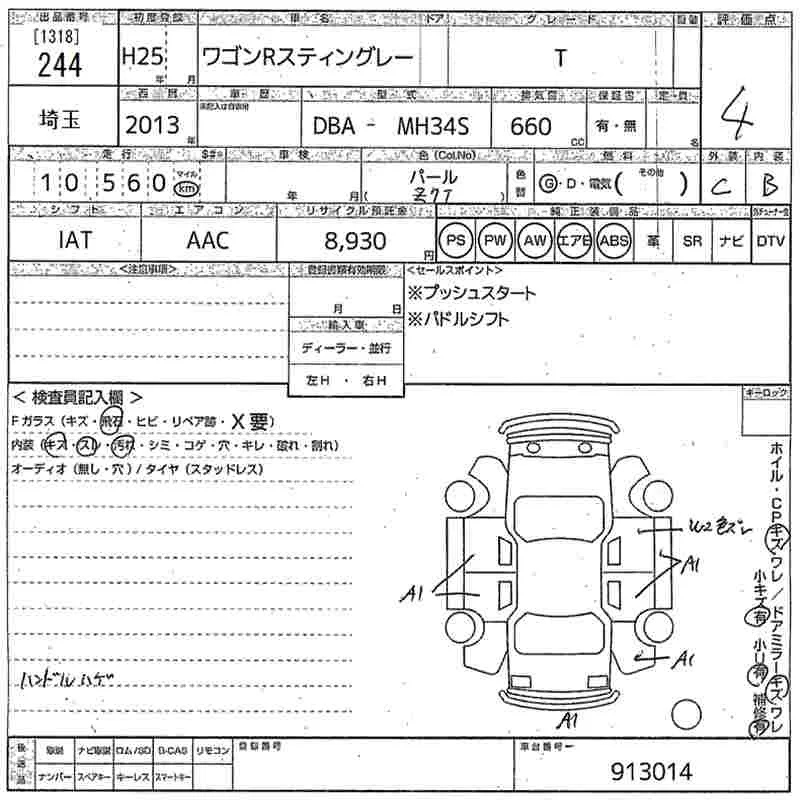 出品番号 初度登録 車名 ドア グレード 評価点
[1318]
244 H25 年 月 ワゴンRスティングレー T 4
西暦 車歴 型式 排気量 保証書 定員
埼玉 2013 年 DBA - MH34S 660 CC 有・無 名
走行 S#* 車検 色 (Col.No) 燃料 外装 内装
10560 マイル km 年 月 パール ( Z7T ) 色替 G・D・電気 ( その他 ) C B
シフト エアコン リサイクル預託金 純正装備品
IAT AAC 8,930 円 PS PW AW エアB ABS 革 SR ナビ DTV
<注意事項> 登録書類有効期限 <セールスポイント>
月 日 ※プッシュスタート
輸入車 ※パドルシフト
ディーラー・並行
左H ・ 右H
< 検査員記入欄 > キーロック
Fガラス (キズ・飛石・ヒビ・リペア跡・X要)
内装 (キズ・スレ・汚れ・シミ・コゲ・穴・キレ・破れ・割れ)
オーディオ (無し・穴) / タイヤ (スタッドレス)
W2 色ズレ
A1 A1
A1
A1
ホイル・CPキズワレ/ドアミラーキズワレ
小キズ有 小リ有 補修有
ハンドルハゲ
後送品 取説 ナビ取説 ロム/SD B-CAS リモコン 登録番号 車台番号
ナンバー スペアキー キーレス スマートキー 913014